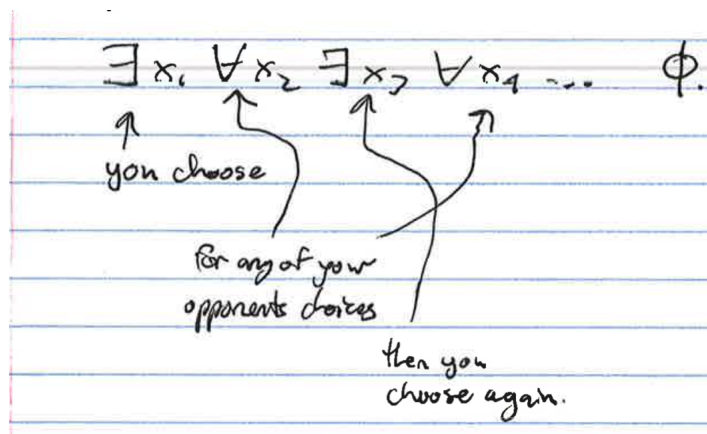 ∃ x₁ ∀ x₂ ∃ x₃ ∀ x₄ ... ϕ.
you choose
for any of your
opponents choices
then you
choose again.